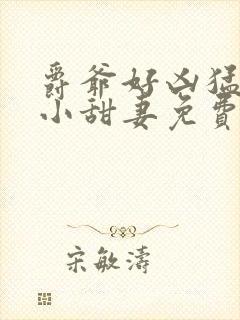 爵爷好凶猛
小甜妻免費
宋敏濤